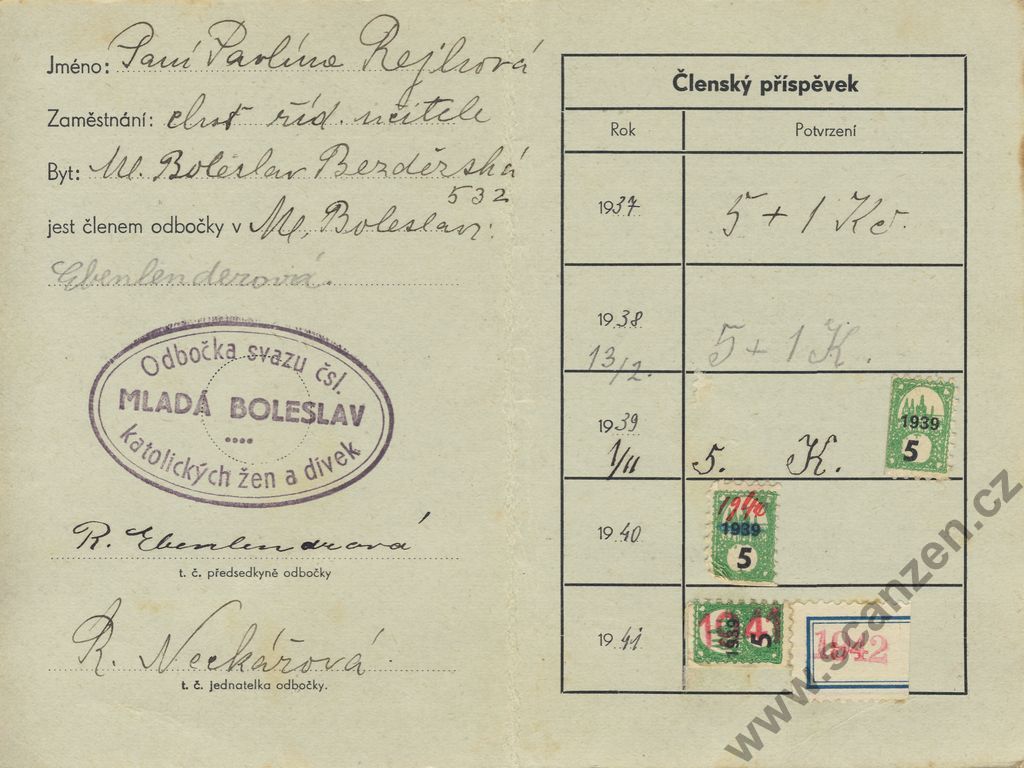 Jméno: Paní Pavlína Rejlková
Zaměstnání: choť říd. učitele
Byt: Ml. Boleslav Bezděžská
532
jest členem odbočky v Ml. Boleslavi.
Ebenlenderová.
Odbočka svazu čsl.
MLADÁ BOLESLAV
katolických žen a dívek
R. Ebenlendrová
t. č. předsedkyně odbočky
R. Neckářová
t. č. jednatelka odbočky.
Členský příspěvek
Rok Potvrzení
1937 5 + 1 Kč.
1938
13/2. 5 + 1 K.
1939
1/II 5. K.
1939
5
1940
1940
1939
5
1941
1941
1939
5
1942
www.scanzen.cz